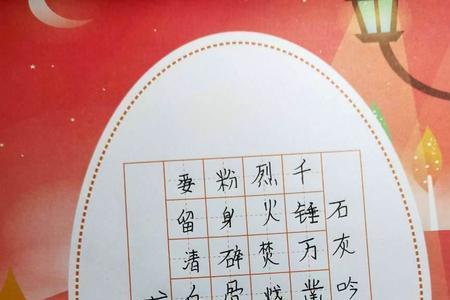 石灰吟
千锤万凿
烈火焚烧
粉身碎骨
要留清白